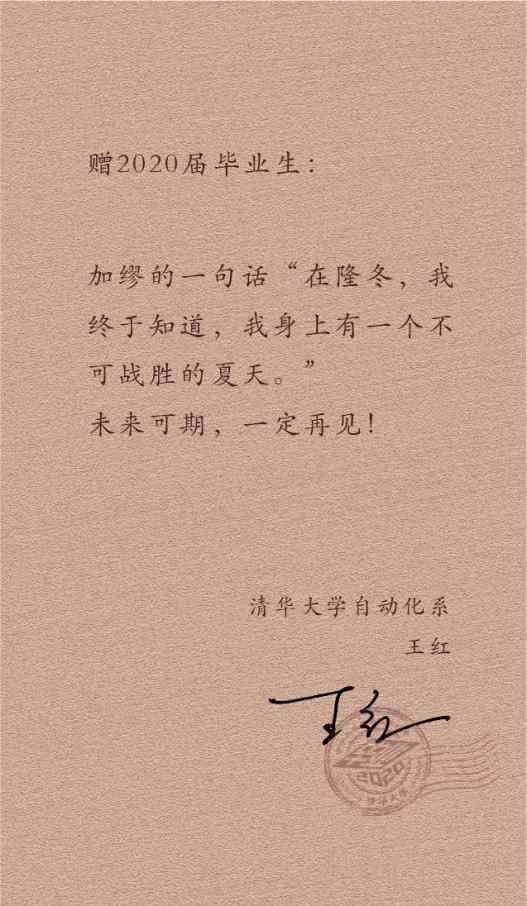 赠2020届毕业生：
加缪的一句话“在隆冬，我
终于知道，我身上有一个不
可战胜的夏天。”
未来可期，一定再见！
清华大学自动化系
王红
王红
2020
清华大学